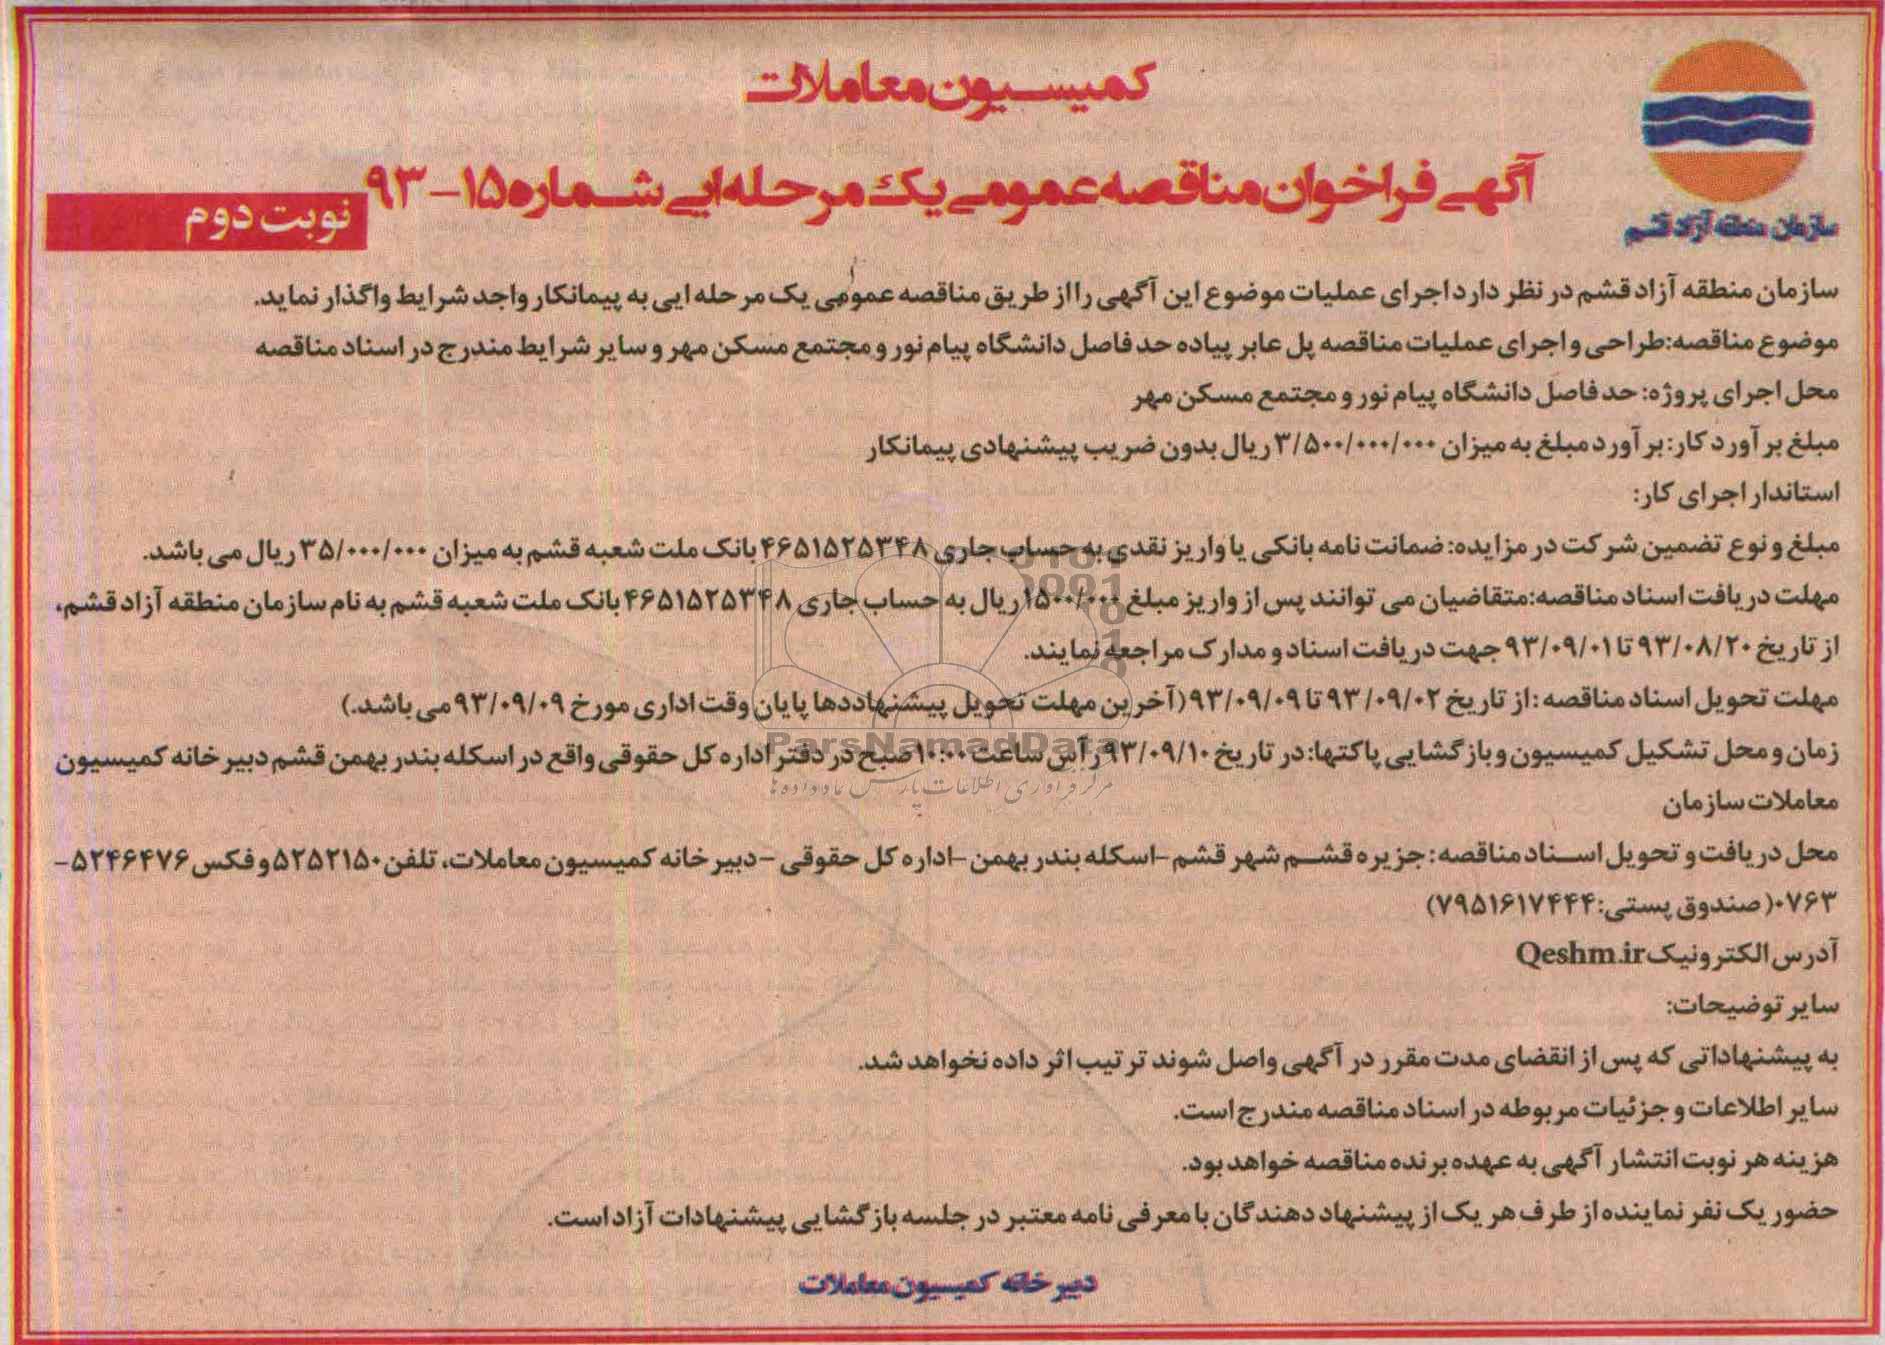 کمیسیون معاملات
آگهی فراخوان مناقصه عمومی یک مرحله ایی شماره ۱۵-۹۳
نوبت دوم
سازمان منطقه آزاد قشم
سازمان منطقه آزاد قشم در نظر دارد اجرای عملیات موضوع این آگهی را از طریق مناقصه عمومی یک مرحله ایی به پیمانکار واجد شرایط واگذار نماید.
موضوع مناقصه: طراحی و اجرای عملیات مناقصه پل عابر پیاده حد فاصل دانشگاه پیام نور و مجتمع مسکن مهر و سایر شرایط مندرج در اسناد مناقصه
محل اجرای پروژه: حد فاصل دانشگاه پیام نور و مجتمع مسکن مهر
مبلغ برآورد کار: برآورد مبلغ به میزان ۳/۵۰۰/۰۰۰/۰۰۰ ریال بدون ضریب پیشنهادی پیمانکار
استاندار اجرای کار:
مبلغ و نوع تضمین شرکت در مزایده: ضمانت نامه بانکی یا واریز نقدی به حساب جاری ۴۶۵۱۵۲۵۳۴۸ بانک ملت شعبه قشم به میزان ۳۵/۰۰۰/۰۰۰ ریال می باشد.
مهلت دریافت اسناد مناقصه: متقاضیان می توانند پس از واریز مبلغ ۱۵۰۰/۰۰۰ ریال به حساب جاری ۴۶۵۱۵۲۵۳۴۸ بانک ملت شعبه قشم به نام سازمان منطقه آزاد قشم،
از تاریخ ۹۳/۰۸/۲۰ تا ۹۳/۰۹/۰۱ جهت دریافت اسناد و مدارک مراجعه نمایند.
مهلت تحویل اسناد مناقصه: از تاریخ ۹۳/۰۹/۰۲ تا ۹۳/۰۹/۰۹ (آخرین مهلت تحویل پیشنهاددها پایان وقت اداری مورخ ۹۳/۰۹/۰۹ می باشد.)
زمان و محل تشکیل کمیسیون و بازگشایی پاکتها: در تاریخ ۹۳/۰۹/۱۰ رأس ساعت ۱۰:۰۰ صبح در دفتر اداره کل حقوقی واقع در اسکله بندر بهمن قشم دبیرخانه کمیسیون
معاملات سازمان
محل دریافت و تحویل اسناد مناقصه: جزیره قشم شهر قشم -اسکله بندر بهمن -اداره کل حقوقی -دبیرخانه کمیسیون معاملات، تلفن ۵۲۵۲۱۵۰ و فکس ۵۲۴۶۴۷۶-
۰۷۶۳ (صندوق پستی: ۷۹۵۱۶۱۷۴۴۴)
آدرس الکترونیک Qeshm.ir
سایر توضیحات:
به پیشنهاداتی که پس از انقضای مدت مقرر در آگهی واصل شوند ترتیب اثر داده نخواهد شد.
سایر اطلاعات و جزئیات مربوطه در اسناد مناقصه مندرج است.
هزینه هر نوبت انتشار آگهی به عهده برنده مناقصه خواهد بود.
حضور یک نفر نماینده از طرف هر یک از پیشنهاد دهندگان با معرفی نامه معتبر در جلسه بازگشایی پیشنهادات آزاد است.
دبیرخانه کمیسیون معاملات
ParsNamadData
مرکز فرآوری اطلاعات پارس نماد داده ها